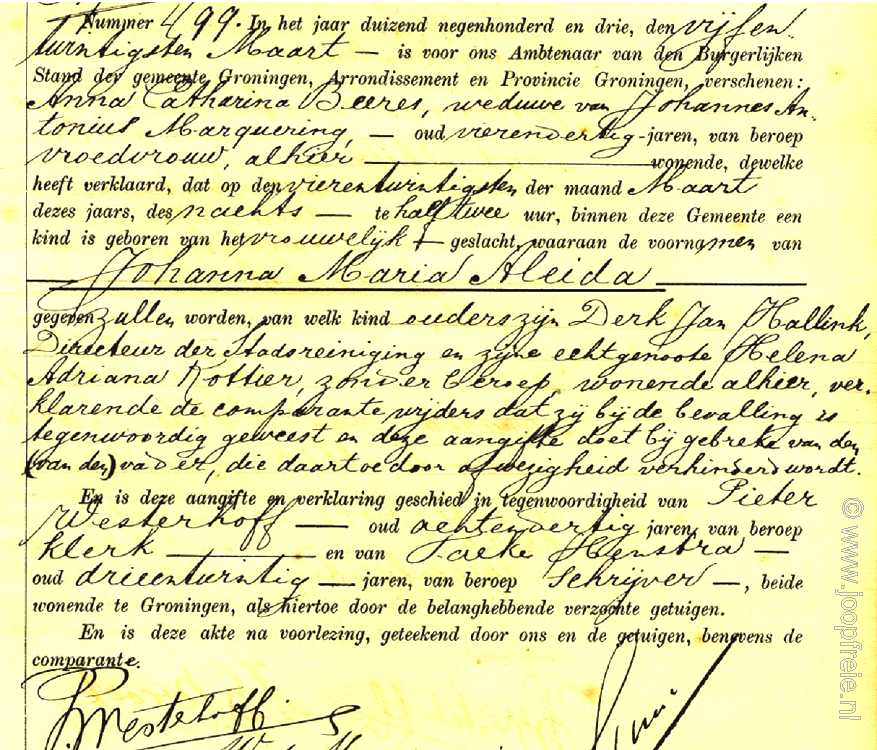 Nummer 499. In het jaar duizend negenhonderd en drie, den vijfen
twintigsten Maart — is voor ons Ambtenaar van den Burgerlijken
Stand der gemeente Groningen, Arrondissement en Provincie Groningen, verschenen:
Anna Catharina Beeres, weduwe van Johannes An-
tonius Marquering, — oud vierendertig jaren, van beroep
vroedvrouw, alhier — wonende, dewelke
heeft verklaard, dat op den vierentwintigsten der maand Maart
dezes jaars, des nachts — te half twee uur, binnen deze Gemeente een
kind is geboren van het vrouwelijk — geslacht, waaraan de voornamen van
— Johanna Maria Aleida —
gegeven zullen worden, van welk kind ouders zijn Derk Jan Hallink,
Directeur der Stadsreiniging en zijne echtgenoote Helena
Adriana Rottier, zonder beroep, wonende alhier, ver-
klarende de comparante wijders dat zij bij de bevalling is
tegenwoordig geweest en deze aangifte doet bij gebreke van den
(van den) vader, die daartoe door afwezigheid verhinderd wordt.
En is deze aangifte en verklaring geschied in tegenwoordigheid van Pieter
Westerhoff — oud achtendertig jaren, van beroep
klerk — en van Taeke Henstra —
oud drieentwintig — jaren, van beroep Schrijver —, beide
wonende te Groningen, als hiertoe door de belanghebbende verzochte getuigen.
En is deze akte na voorlezing, geteekend door ons en de getuigen, benevens de
comparante.
P. Westerhoff
© www.joopfreie.nl